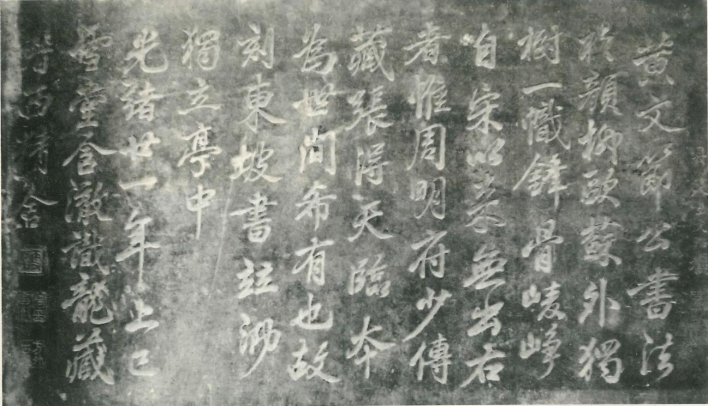 黃文節公書法
於顏柳歐蘇外獨
樹一幟鋒骨崚崢
自宋以來無出右
者惟周明府少傳
藏張得天臨本
為世間希有也故
刻東坡書竝泐
獨立亭中
光緒廿一年上巳
雪堂含澈識龍藏
寺西精舍